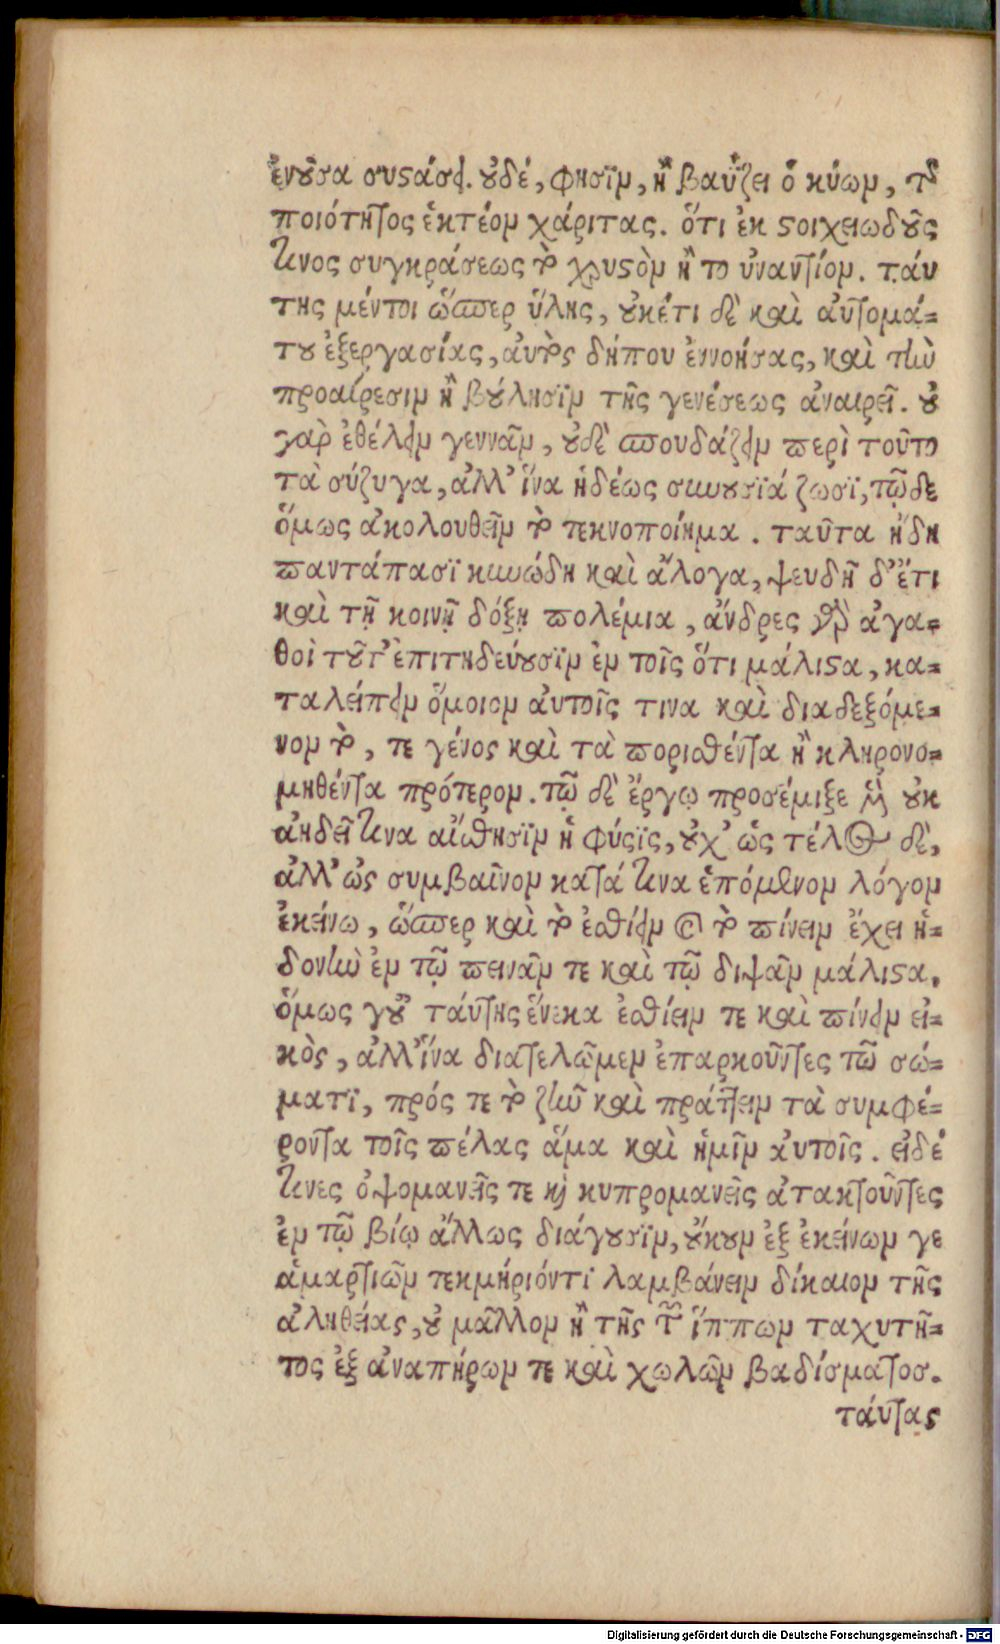 ἐνοῦσα συστάσει. οὐδέ, φησὶν, ἢ βαΰζει ὁ κύων, τοῦ
ποιότητος ἑκτέον χάριτας. ὅτι ἐκ στοιχειωδοῦς
τινος συγκράσεως τὸ χρυσὸν ἢ τὸ ὑναντίον. ταύ
της μέντοι ὥσπερ ὕλης, οὐκέτι δὲ καὶ αὐτομά=
του ἐξεργασίας, αὐτὸς δήπου ἐννοήσας, καὶ τὴν
προαίρεσιν ἢ βούλησιν τῆς γενέσεως ἀναιρεῖ. οὐ
γὰρ ἐθέλειν γεννᾶν, οὐδὲ σπουδάζειν περὶ τοῦτο
τὰ σύζυγα, ἀλλ' ἵνα ἡδέως συνουσιάζωσι, τῷδε
ὅμως ἀκολουθεῖν τὸ τεκνοποίημα. ταῦτα ἤδη
παντάπασι κυνώδη καὶ ἄλογα, ψευδῆ δ' ἔτι
καὶ τῇ κοινῇ δόξῃ πολέμια, ἄνδρες γὰρ ἀγα=
θοὶ τοῦτ' ἐπιτηδεύουσιν ἐν τοῖς ὅτι μάλιστα, κα=
ταλείπειν ὅμοιον αὐτοῖς τινα καὶ διαδεξόμε=
νον τὸ, τε γένος καὶ τὰ πορισθέντα ἢ κληρονο=
μηθέντα πρότερον. τῷ δὲ ἔργῳ προσέμιξε μὲν οὐκ
ἀηδεῖ τινα αἴσθησιν ἡ φύσις, οὐχ' ὡς τέλος δὲ,
ἀλλ' ὡς συμβαῖνον κατά τινα ἑπόμενον λόγον
ἐκείνω, ὥσπερ καὶ τὸ ἐσθίειν καὶ τὸ πίνειν ἔχει ἡ=
δονὴν ἐν τῷ πεινᾶν τε καὶ τῷ διψᾶν μάλιστα.
ὅμως γοῦ ταύτης ἕνεκα ἐσθίειν τε καὶ πίνειν εἰ=
κὸς, ἀλλ' ἵνα διατελῶμεν ἐπαρκοῦντες τῷ σώ=
ματι, πρός τε τὸ ζῆν καὶ πράττειν τὰ συμφέ=
ροντα τοῖς πέλας ἅμα καὶ ἡμῖν αὐτοῖς. εἰδέ
τινες ὀψομανεῖς τε καὶ κυπρομανεῖς ἀτακτοῦντες
ἐν τῷ βίῳ ἄλλως διάγουσιν, οὔκουν ἐξ ἐκείνων γε
ἁμαρτιῶν τεκμήριόντι λαμβάνειν δίκαιον τῆς
ἀληθείας, οὐ μᾶλλον ἢ τῆς τῶν ἵππων ταχυτῆ=
τος ἐξ ἀναπήρων τε καὶ χωλῶν βαδίσματος.
ταύτας
Digitalisierung gefördert durch die Deutsche Forschungsgemeinschaft - DFG